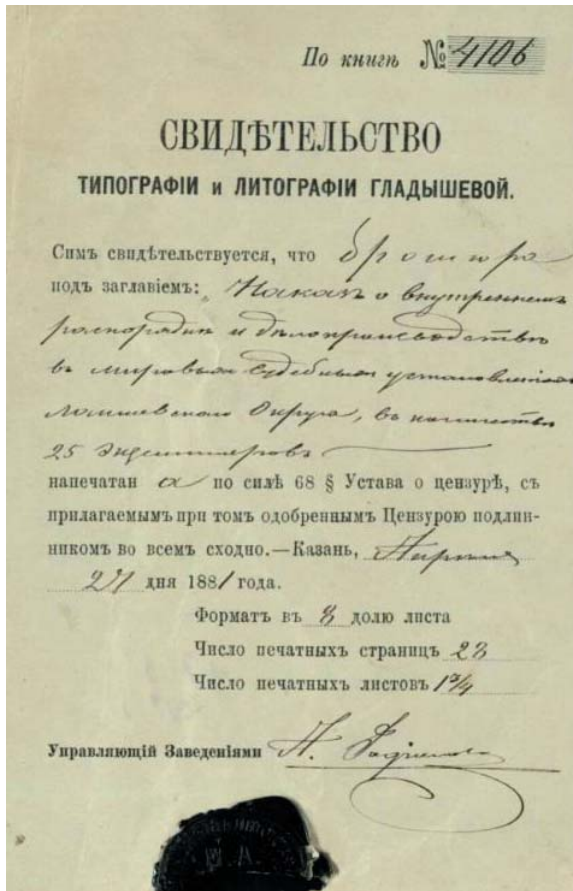 По книгѣ № 4106
СВИДѢТЕЛЬСТВО
ТИПОГРАФІИ и ЛИТОГРАФІИ ГЛАДЫШЕВОЙ.
Симъ свидѣтельствуется, что брошюра
подъ заглавіемъ: „Наказъ о внутреннемъ
распорядкѣ и дѣлопроизводствѣ
въ мировыхъ судебныхъ установленіяхъ
Лаишевскаго Округа, въ количествѣ
25 экземпляровъ
напечатана по силѣ 68 § Устава о цензурѣ, съ
прилагаемымъ при томъ одобреннымъ Цензурою подлин-
никомъ во всемъ сходно.—Казань,
27 дня 1881 года.
Форматъ въ 8 долю листа
Число печатныхъ страницъ 28
Число печатныхъ листовъ 1 3/4
Управляющій Заведеніями Н.